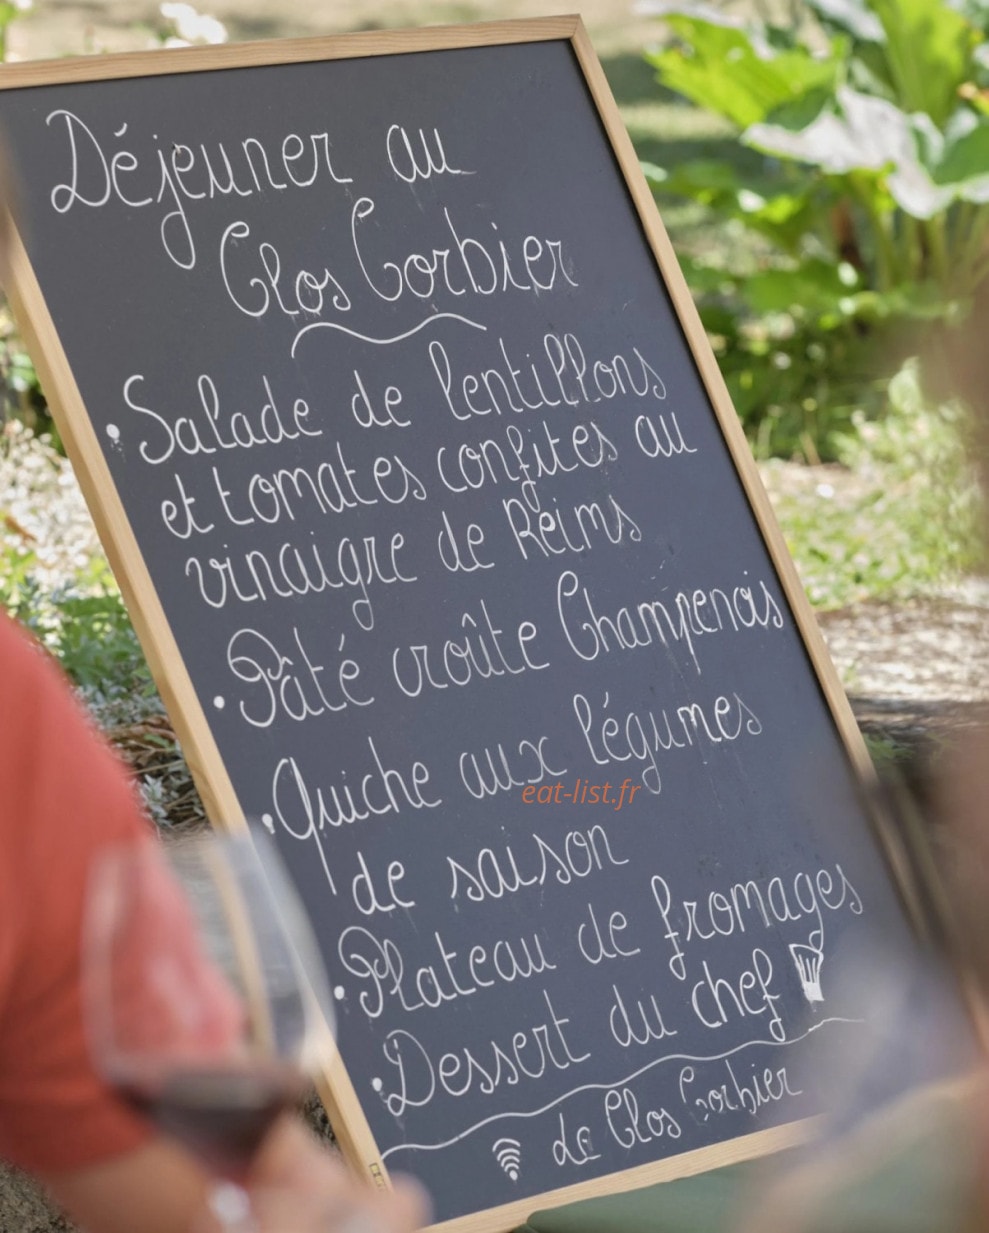 Déjeuner au
Clos Corbier
• Salade de lentillons
et tomates confites au
vinaigre de Reims
• Pâté croûte Champenois
• Quiche aux légumes
eat-list.fr
de saison
• Plateau de fromages
• Dessert du chef
Le Clos Corbier